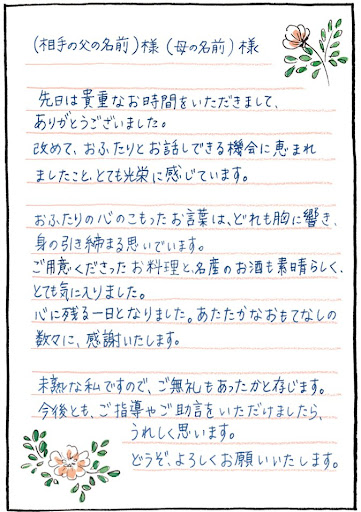 (相手の父の名前)様 (母の名前) 様
先日は貴重なお時間をいただきまして、
ありがとうございました。
改めて、おふたりとお話しできる機会に恵まれ
ましたこと、とても光栄に感じています。
おふたりの心のこもったお言葉は、どれも胸に響き、
身の引き締まる思いでいます。
ご用意くださったお料理と、名産のお酒も素晴らしく、
とても気に入りました。
心に残る一日となりました。あたたかなおもてなしの
数々に、感謝いたします。
未熟な私ですので、ご無礼もあったかと存じます。
今後とも、ご指導やご助言をいただけましたら、
うれしく思います。
どうぞ、よろしくお願いいたします。